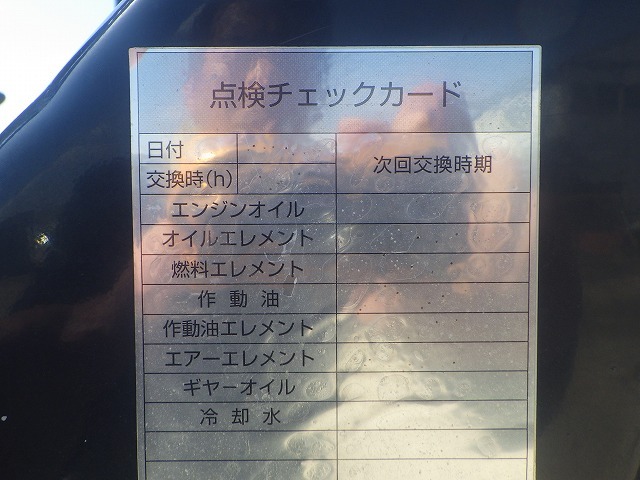 点検チェックカード
日付
交換時(h)
次回交換時期
エンジンオイル
オイルエレメント
燃料エレメント
作動油
作動油エレメント
エアーエレメント
ギヤーオイル
冷却水